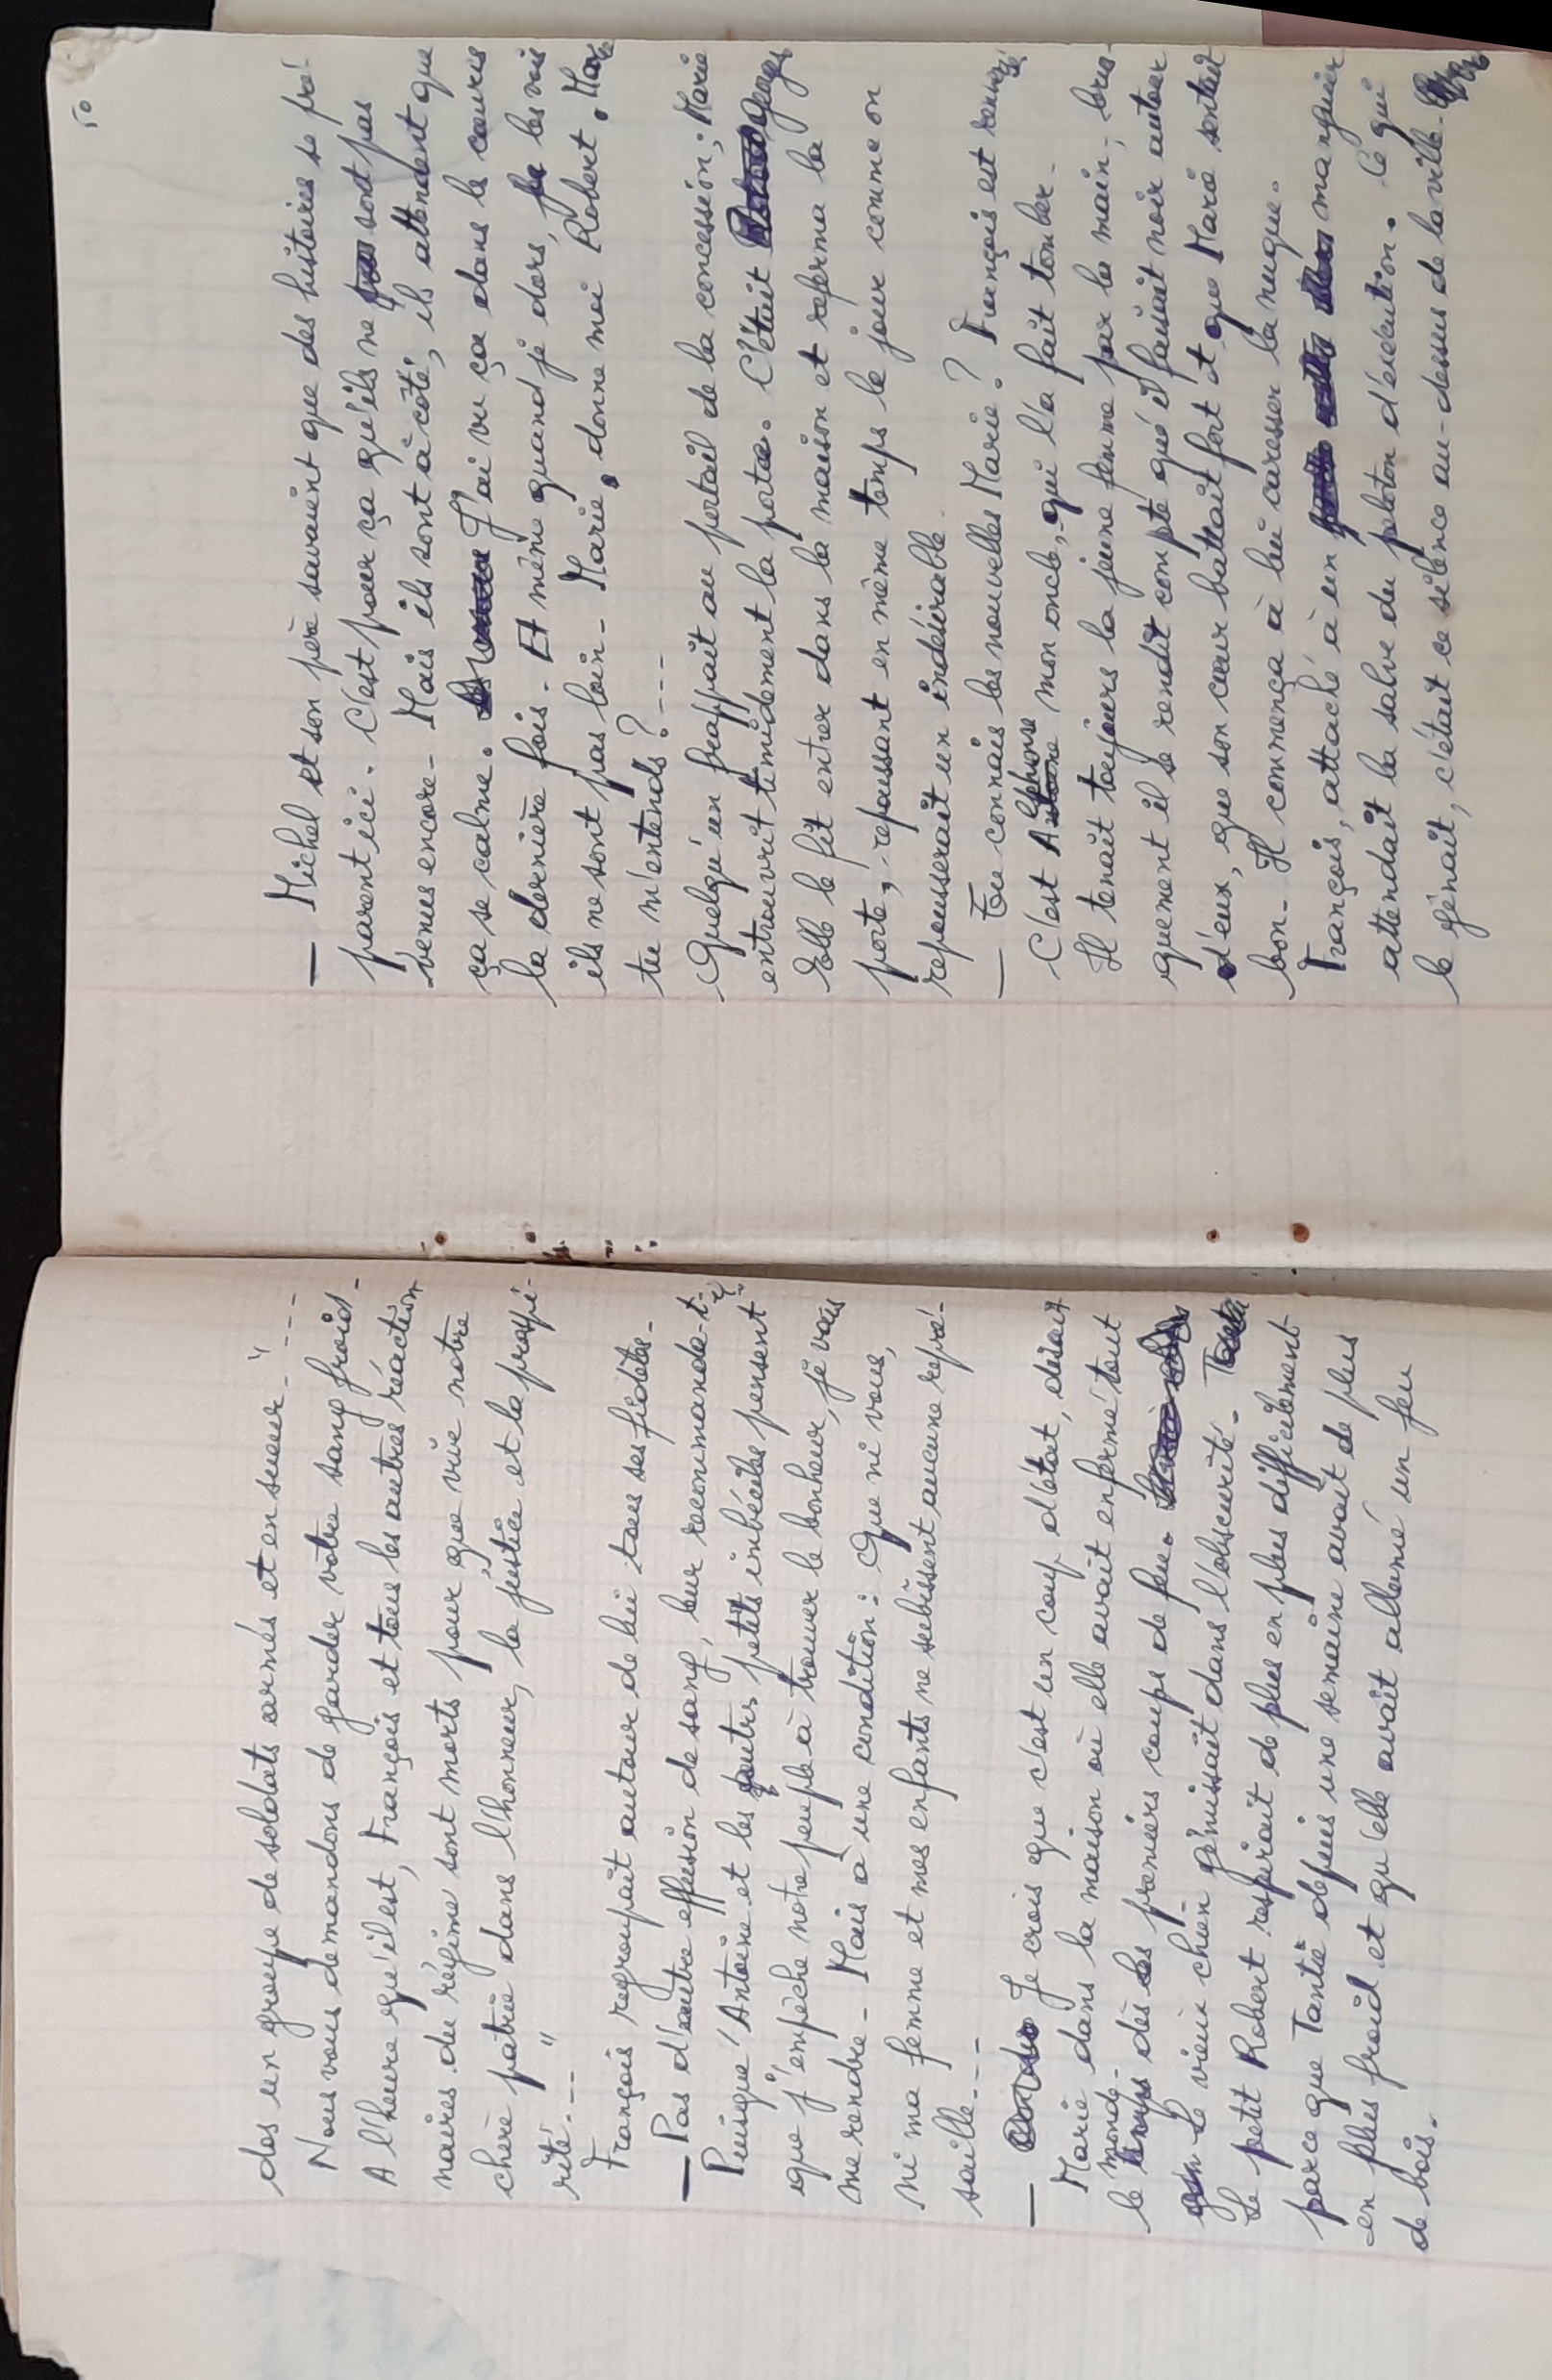 dos un groupe de soldats armés et en sueur- "---
Nous vous demandons de garder votre sang froid-
A l'heure qu'il est, François et tous les autres réaction
naires du régime sont morts pour que vive notre
chère patrie dans l'honneur, la justice et la prospé-
rité.-- "
François regroupait autour de lui tous ses fidèles-
— Pas d'autre effusion de sang, leur recommanda-t-il
Puisque Antoine et les autres petits imbéciles pensent
que j'empêche notre peuple à trouver le bonheur, je vais
me rendre- Mais à une condition: Que ni vous,
ni ma femme et mes enfants ne subissent aucune repré-
saille---
— Je crois que c'est un coup d'état, disait
Marie dans la maison où elle avait enfermé tout
le monde- dès les premiers coups de feu.
Le vieux chien gémissait dans l'obscurité-
Le petit Robert respirait de plus en plus difficilement
parce que Tantie depuis une semaine avait de plus
en plus froid et qu'elle avait allumé un feu
de bois.
10
— Michel et son père savaient que des histoires se pré-
parent ici. C'est pour ça qu'ils ne sont pas
venus encore- Mais ils sont à côté; ils attendent que
ça se calme. J'ai vu ça dans le cauris
la dernière fois- Et même quand je dors, je les vois
ils ne sont pas loin- Marie, donne moi Robert. Marie
tu m'entends?---
Quelqu'un frappait au portail de la concession; Marie
entrouvrit timidement la porte. C'était Georges
Elle le fit entrer dans la maison et referma la
porte, repoussant en même temps le jour comme on
repousserait un indésirable.
— Tu connais les nouvelles Marie? François est renversé
C'est Alphonse mon oncle, qui l'a fait tomber-
Il tenait toujours la jeune femme par la main; brus-
quement il se rendit compte qu'il faisait noir autour
d'eux, que son cœur battait fort et que Marie sentait
bon- Il commença à lui caresser la nuque.
François, attaché à un manguier
attendait la salve du peloton d'exécution. Ce qui
le gênait, c'était ce silence au-dessus de la ville-